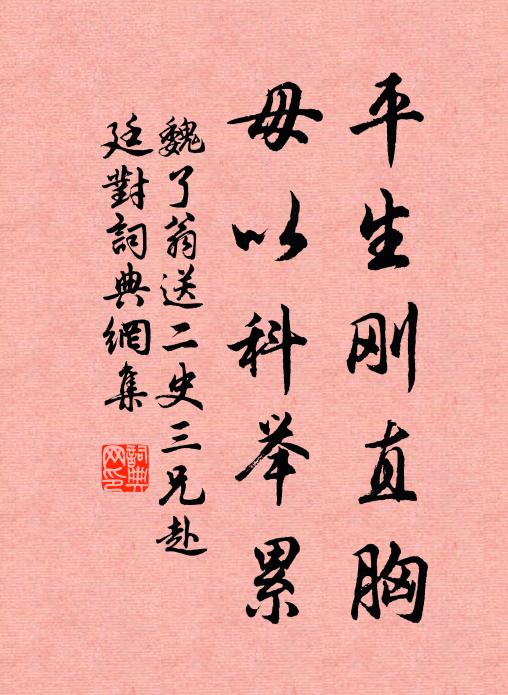 平生刚直胸
毋以科举累
魏了翁送二史三兄赴
廷對詞典網集
詞典网印